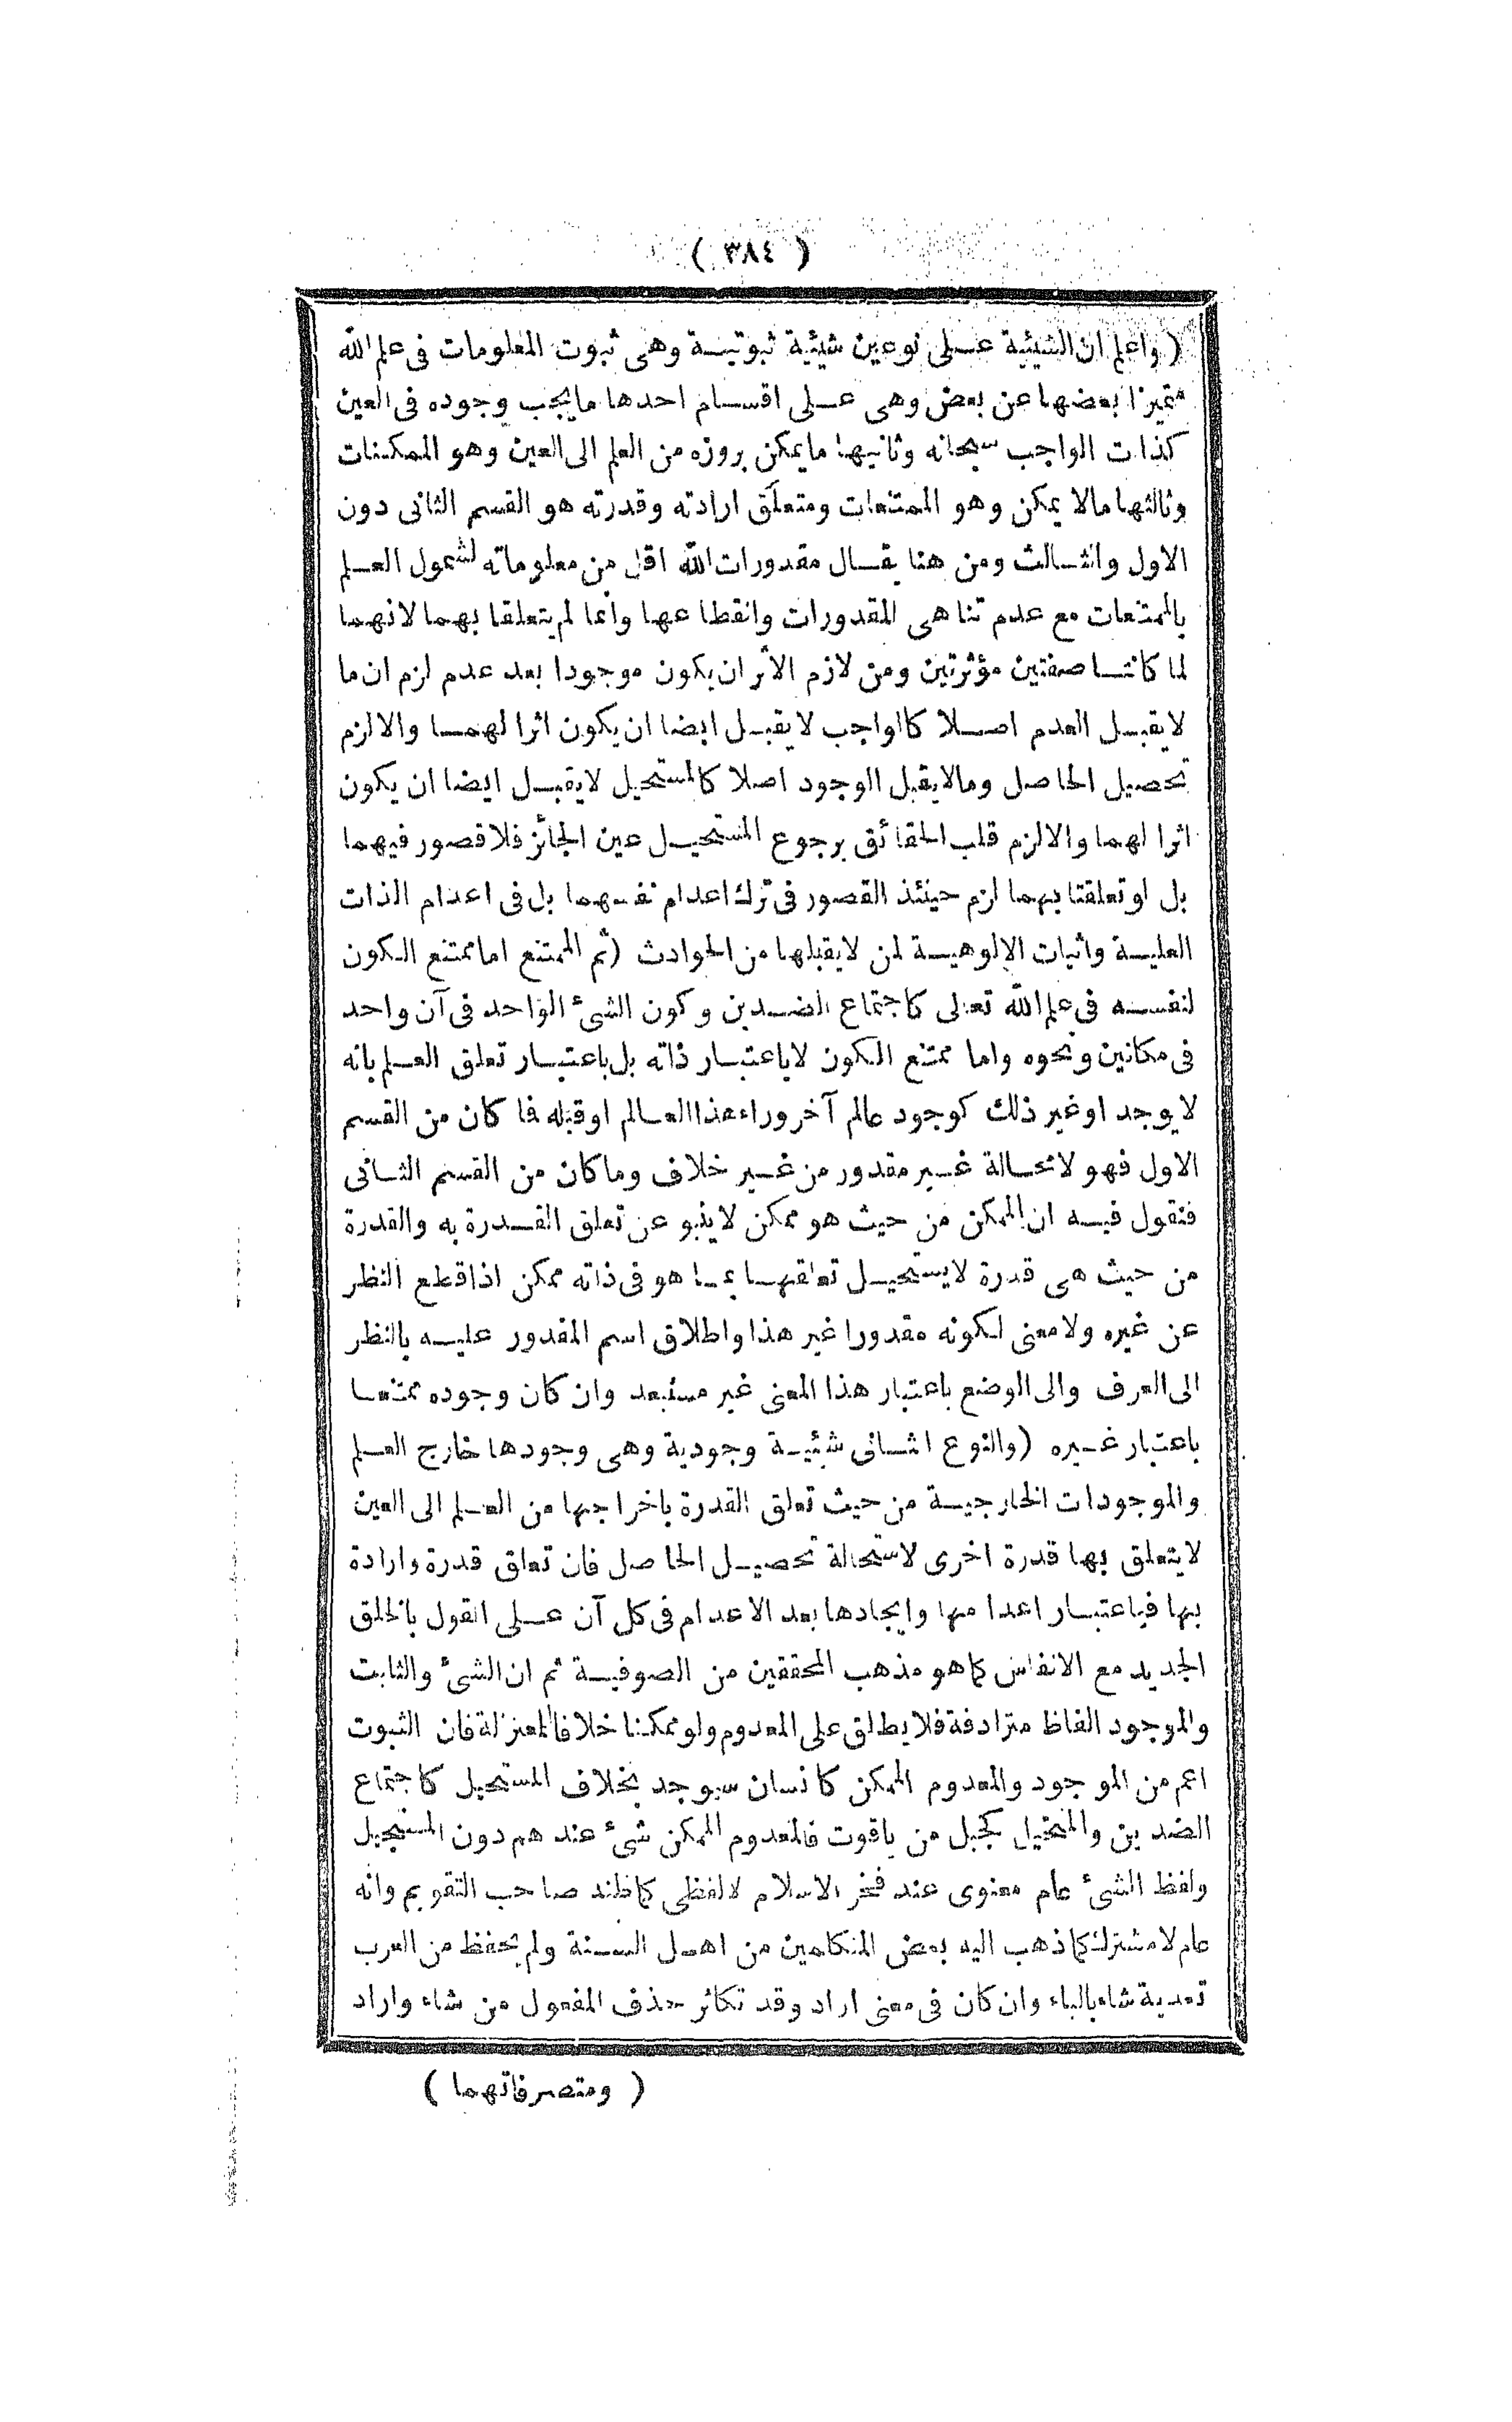 ( ٣٨٤ )
( واعلم ان الشيئية عـلى نوعين شيئية ثبوتيـة وهى ثبوت المعلومات فى علم الله
متميزا بعضها عن بعض وهى عـلى اقسام احدها مايجب وجوده فى العين
كذات الواجب سبحانه وثانيها مايمكن بروزه من العلم الى العين وهو الممكنات
وثالثها مالا يمكن وهو الممتنعات ومتعلق ارادته وقدرته هو القسم الثانى دون
الاول والثـالث ومن هنا يقـال مقدورات الله اقل من معلوماته لشمول العـلم
بالممتنعات مع عدم تناهى المقدورات وانقطاعها وانما لم يتعلقا بهما لانهما
لما كانتـا صفتين مؤثرتين ومن لازم الاثر ان يكون موجودا بعد عدم لزم ان ما
لايقبـل العدم اصـلا كالواجب لايقبـل ايضا ان يكون اثرا لهمـا والالزم
تحصيل الحاصل ومالايقبل الوجود اصلا كالمستحيل لايقبـل ايضا ان يكون
اثرا لهما والالزم قلب الحقائق برجوع المستحيـل عين الجائز فلاقصور فيهما
بل لو تعلقتا بهما لزم حينئذ القصور فى ترك اعدام نفسهما بل فى اعدام الذات
العليـة واثبات الالوهيـة لمن لايقبلها من الحوادث (ثم الممتنع اما ممتنع الكون
لنفسـه فى علم الله تعالى كاجتماع الضـدين وكون الشئ الواحد فى آن واحد
فى مكانين ونحوه واما ممتنع الكون لاباعتبـار ذاته بل باعتبـار تعلق العـلم بانه
لايوجد اوغير ذلك كوجود عالم آخر وراء هذا العـالم اوقبله فا كان من القسم
الاول فهو لامحـالة غـير مقدور من غـير خلاف وماكان من القسم الثـانى
فنقول فيـه ان الممكن من حيث هو ممكن لاينبو عن تعلق القـدرة به والقدرة
من حيث هى قدرة لايستحيـل تعلقهـا بمـا هو فى ذاته ممكن اذا قطع النظر
عن غيره ولامعنى لكونه مقدورا غير هذا واطلاق اسم المقدور عليـه بالنظر
الى العرف والى الوضع باعتبار هذا المعنى غير مستبعد وان كان وجوده ممتنعـا
باعتبار غـيره (والنوع الثـانى شيئيـة وجودية وهى وجودها خارج العـلم
والموجودات الخارجيـة من حيث تعلق القدرة باخراجها من العـلم الى العين
لايتعلق بها قدرة اخرى لاستحالة تحصيـل الحاصل فان تعلق قدرة وارادة
بها فباعتبـار اعدامها وايجادها بعد الاعدام فى كل آن عـلى القول بالخلق
الجديد مع الانفاس كماهو مذهب المحققين من الصوفيـة ثم ان الشئ والثابت
والموجود الفاظ مترادفة فلايطلق على المعدوم ولو ممكنا خلافا للمعتزلة فان الثبوت
اعم من الموجود والمعدوم الممكن كانسان سيوجد بخلاف المستحيل كاجتماع
الضدين والمتخيل كجبل من ياقوت فالمعدوم الممكن شئ عندهم دون المستحيل
ولفظ الشئ عام معنوى عند فخر الاسلام لالفظى كماظنه صاحب التقويم وانه
عام لامشترك كماذهب اليه بعض المتكلمين من اهـل السـنة ولم يحفظ من العرب
تعدية شاء بالباء وان كان فى معنى اراد وقد تكاثر حذف المفعول من شاء واراد
( ومتصرفاتهما )